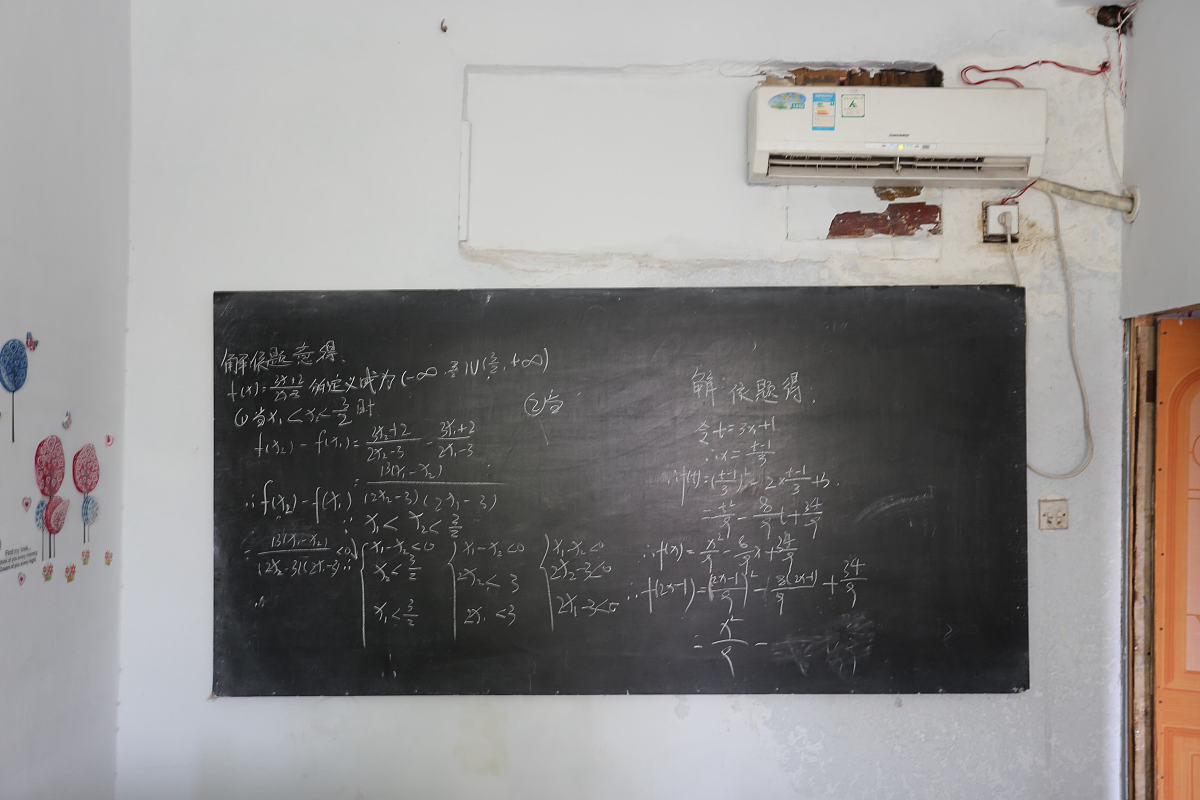 解依题意得.
f(x)=\frac{3x+2}{2x-3} 的定义域为(-∞,\frac{3}{2})∪(\frac{3}{2},+∞)
①当x₁<x₂<\frac{3}{2}时
f(x₂)-f(x₁)=\frac{3x₂+2}{2x₂-3}-\frac{3x₁+2}{2x₁-3}
=\frac{13(x₁-x₂)}{(2x₂-3)(2x₁-3)}
∴f(x₂)-f(x₁)
∵x₁<x₂<\frac{3}{2}
∵\frac{13(x₁-x₂)}{(2x₂-3)(2x₁-3)}<0
∴
x₁-x₂<0
x₂<\frac{3}{2}
x₁<\frac{3}{2}
x₁-x₂<0
2x₂<3
2x₁<3
x₁-x₂<0
2x₂-3<0
2x₁-3<0
②当
解:依题得.
令t=3x+1
∴x=\frac{t-1}{3}
∴f(t)=(\frac{t-1}{3})²-2x\frac{t-1}{3}+3.
=\frac{t²}{9}-\frac{8}{9}t+\frac{34}{9}
∴f(x)=\frac{x²}{9}-\frac{8}{9}x+\frac{34}{9}
∴f(2x-1)=\frac{(2x-1)²}{9}-\frac{8(2x-1)}{9}+\frac{34}{9}
=\frac{x²}{9}-